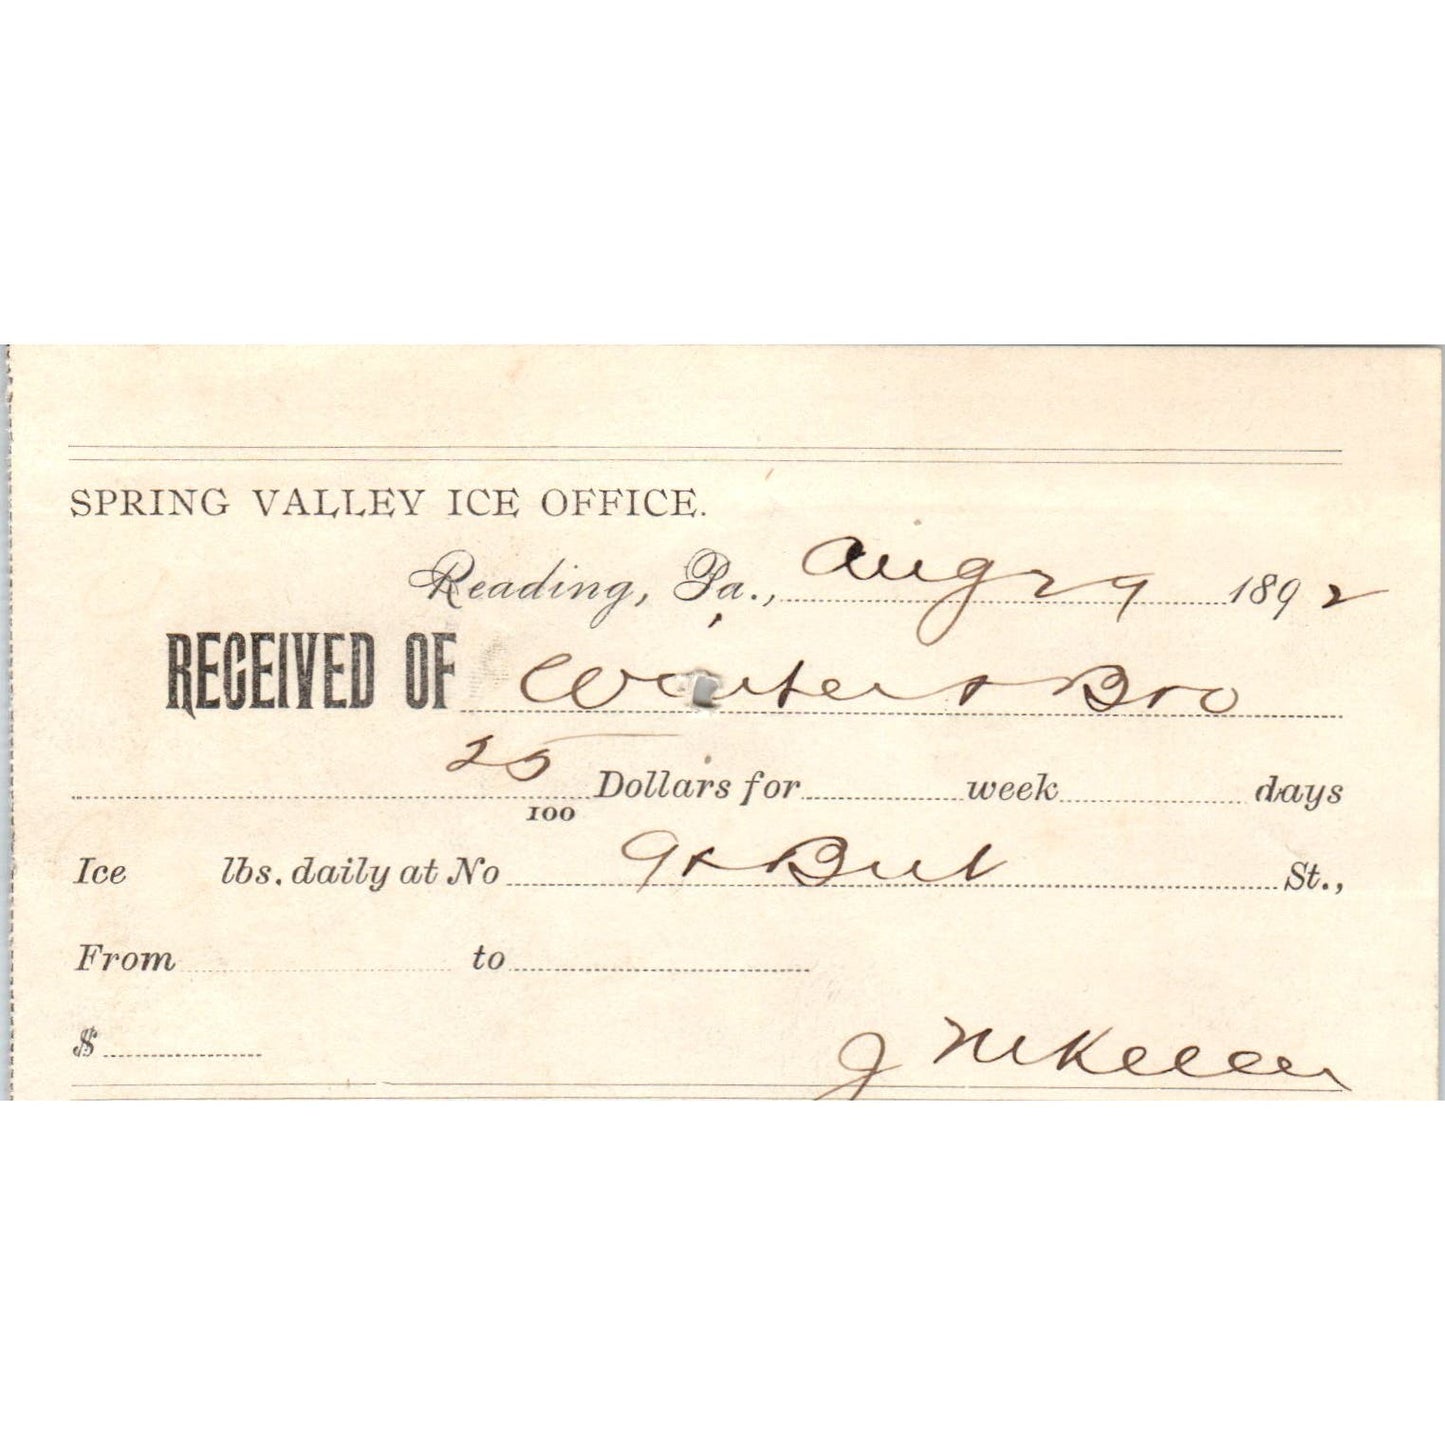 SPRING VALLEY ICE OFFICE.
Reading, Pa., Aug 29 1892
RECEIVED OF Winter & Bro
25/100 Dollars for week days
Ice lbs. daily at No 9 & But St.,
From to
$ J McKeever